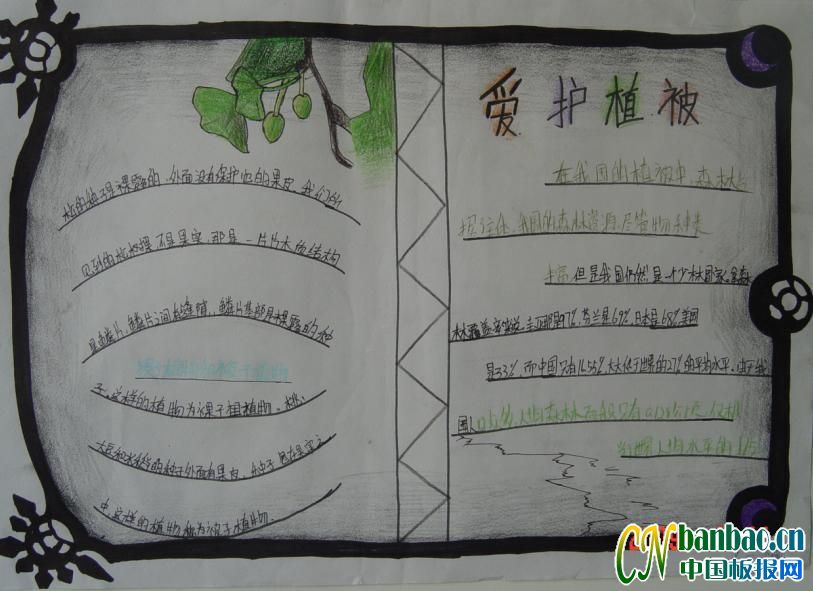 松的种子是裸露的，外面没有保护它的果皮，我们所
见到的松 不是果实，那是一片片木质结构
鳞片，鳞片之间有缝隙，鳞片基部是裸露的种
裸子植物和被子植物
子，这样的植物为裸子植物。桃、
大豆和水稻的种子外面有果皮，种子包在果实之
中，这样的植物称为被子植物。
爱护植被
在我国的植被中，森林占
我国的森林资源，尽管物种
丰富，但是我国仍然是一个少林国家。拿森
林覆盖率来说，圭亚那是97%，芬兰是69%，日本是68%，美国
是33%，而中国只有16.55%，大大低于世界的27%的平均水平。由于我
国人口众多，人均森林面积只有0.128公顷，仅相
当世界人均水平的1/5
CNbanbao.cn
中国板报网